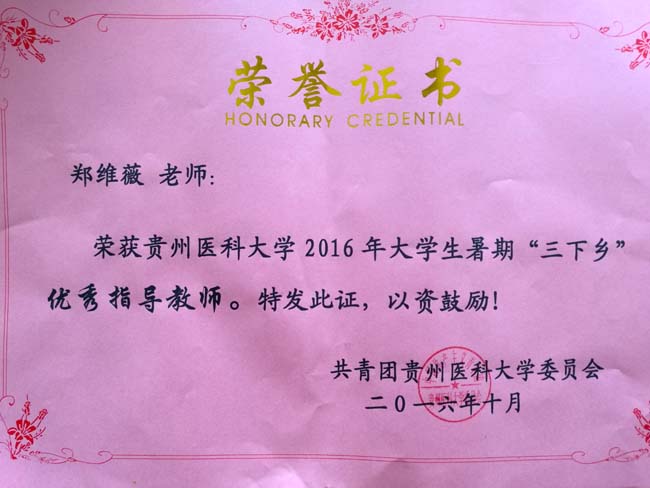 荣誉证书
HONORARY CREDENTIAL
郑维薇 老师：
荣获贵州医科大学2016年大学生暑期“三下乡”
优秀指导教师。特发此证，以资鼓励！
共青团贵州医科大学委员会
二〇一六年十月